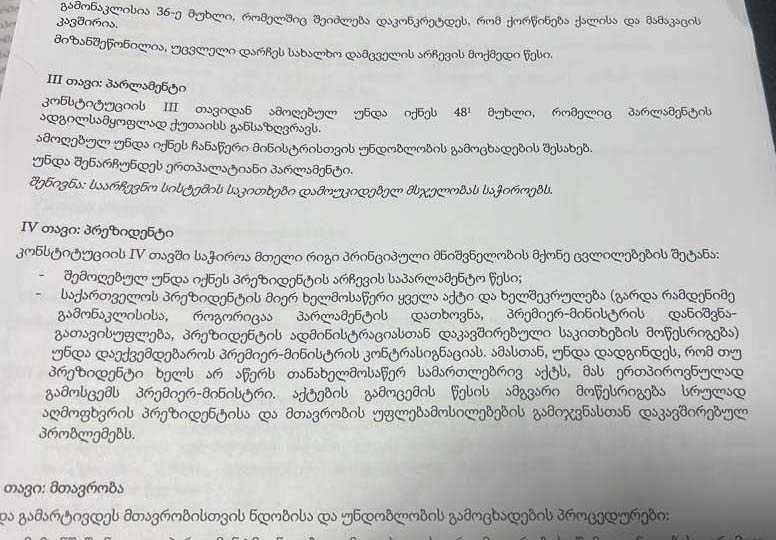 გამონაკლისია 36-ე მუხლი, რომელშიც შეიძლება დაკონკრეტდეს, რომ ქორწინება ქალისა და მამაკაცის
კავშირია.
მიზანშეწონილია, უცვლელი დარჩეს სახალხო დამცველის არჩევის მოქმედი წესი.
III თავი: პარლამენტი
კონსტიტუციის III თავიდან ამოღებულ უნდა იქნეს 48¹ მუხლი, რომელიც პარლამენტის
ადგილსამყოფლად ქუთაისს განსაზღვრავს.
ამოღებულ უნდა იქნეს ჩანაწერი მინისტრისთვის უნდობლობის გამოცხადების შესახებ.
უნდა შენარჩუნდეს ერთპალატიანი პარლამენტი.
შენიშვნა: საარჩევნო სისტემის საკითხები დამოუკიდებელ მსჯელობას საჭიროებს.
IV თავი: პრეზიდენტი
კონსტიტუციის IV თავში საჭიროა მთელი რიგი პრინციპული მნიშვნელობის მქონე ცვლილებების შეტანა:
- შემოღებულ უნდა იქნეს პრეზიდენტის არჩევის საპარლამენტო წესი;
- საქართველოს პრეზიდენტის მიერ ხელმოსაწერი ყველა აქტი და ხელშეკრულება (გარდა რამდენიმე
გამონაკლისისა, როგორიცაა პარლამენტის დათხოვნა, პრემიერ-მინისტრის დანიშვნა-
გათავისუფლება, პრეზიდენტის ადმინისტრაციასთან დაკავშირებული საკითხების მოწესრიგება)
უნდა დაექვემდებაროს პრემიერ-მინისტრის კონტრასიგნაციას. ამასთან, უნდა დადგინდეს, რომ თუ
პრეზიდენტი ხელს არ აწერს თანახელმოსაწერ სამართლებრივ აქტს, მას ერთპიროვნულად
გამოსცემს პრემიერ-მინისტრი. აქტების გამოცემის წესის ამგვარი მოწესრიგება სრულად
აღმოფხვრის პრეზიდენტისა და მთავრობის უფლებამოსილებების გამიჯვნასთან დაკავშირებულ
პრობლემებს.
თავი: მთავრობა
და გამარტივდეს მთავრობისთვის ნდობისა და უნდობლობის გამოცხადების პროცედურები: